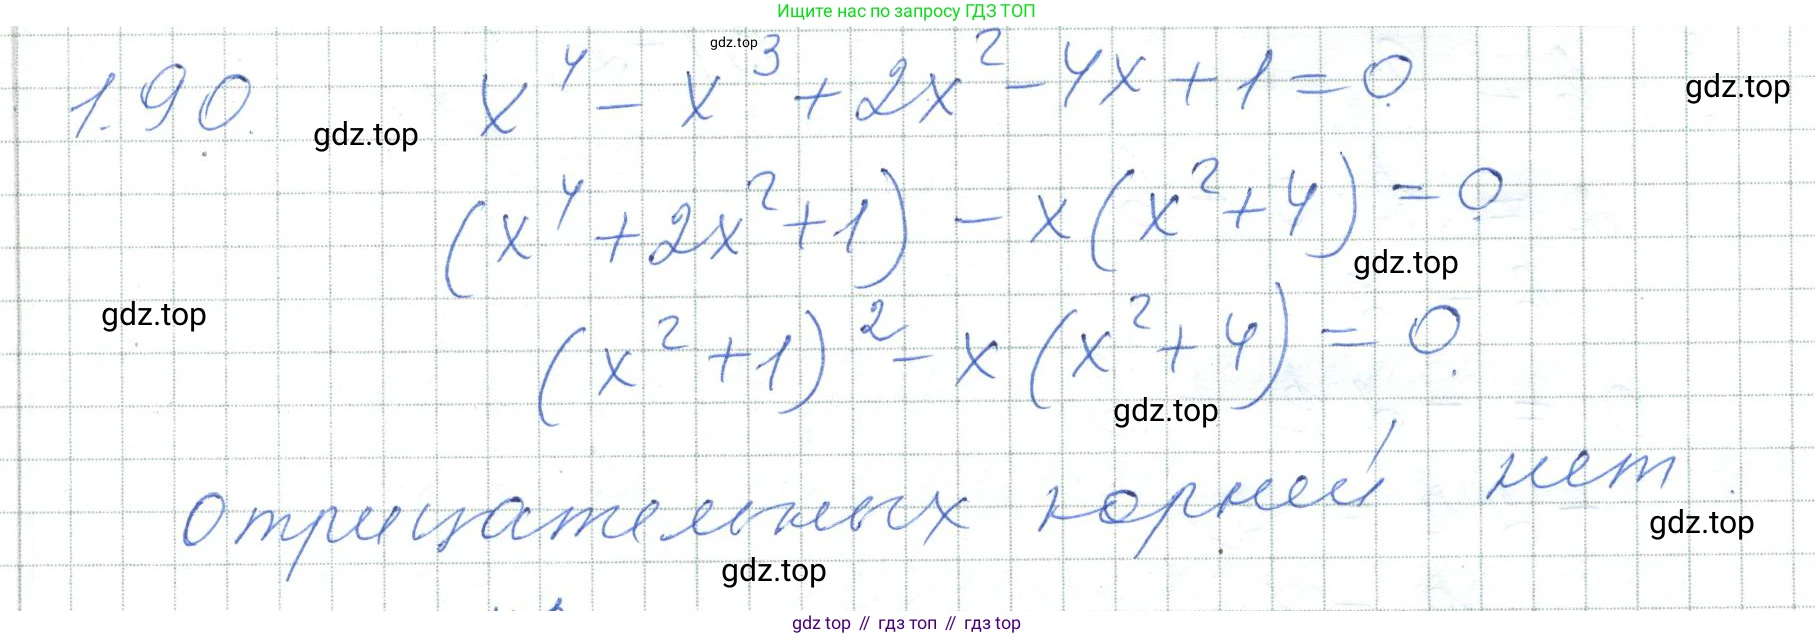 Ищите нас по запросу ГДЗ ТОП
1.90. x⁴ - x³ + 2x² - 4x + 1 = 0
gdz.top
gdz.top
gdz.top
(x⁴ + 2x² + 1) - x(x² + 4) = 0
gdz.top
gdz.top
(x² + 1)² - x(x² + 4) = 0.
gdz.top
отрицательных корней нет.
gdz.top
gdz.top
gdz top // гдз топ // гдз top